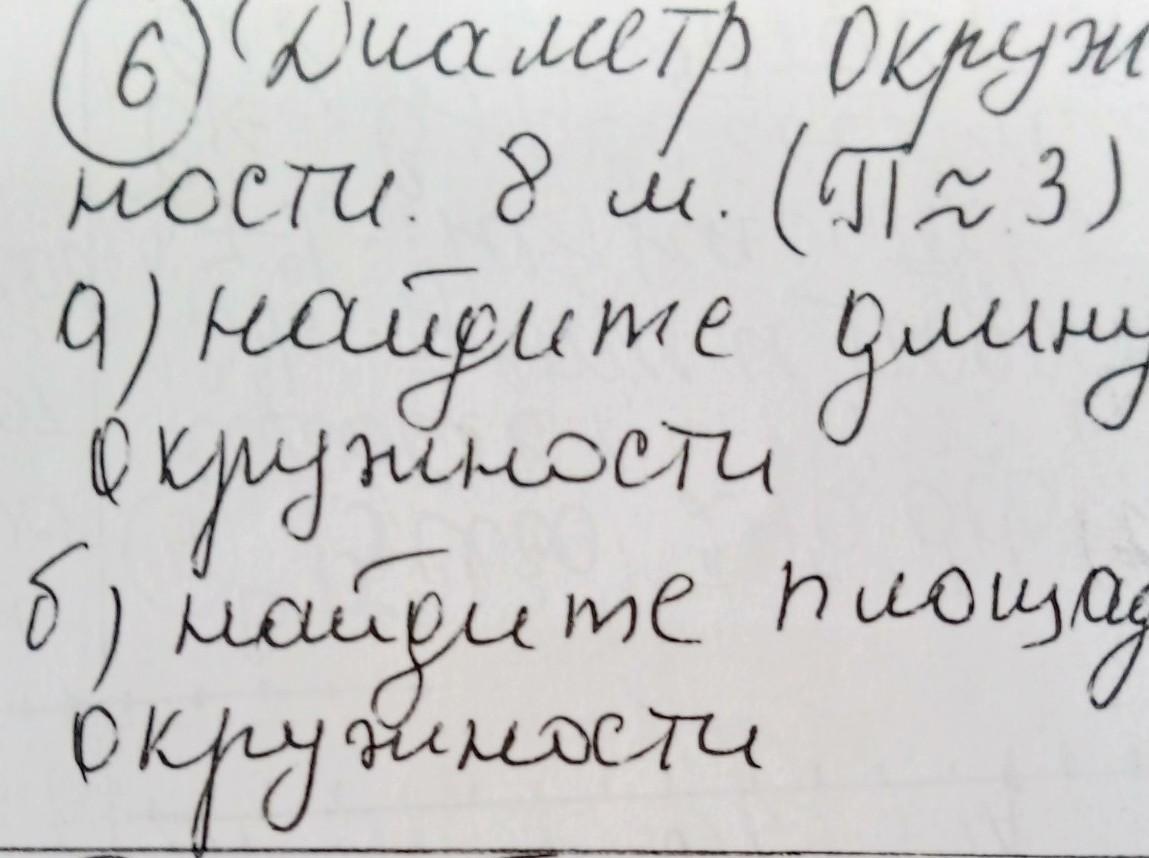 6 Диаметр окруж
ности. 8 м. (П ≈ 3)
а) найдите длину
окружности
б) найдите площад
окружности